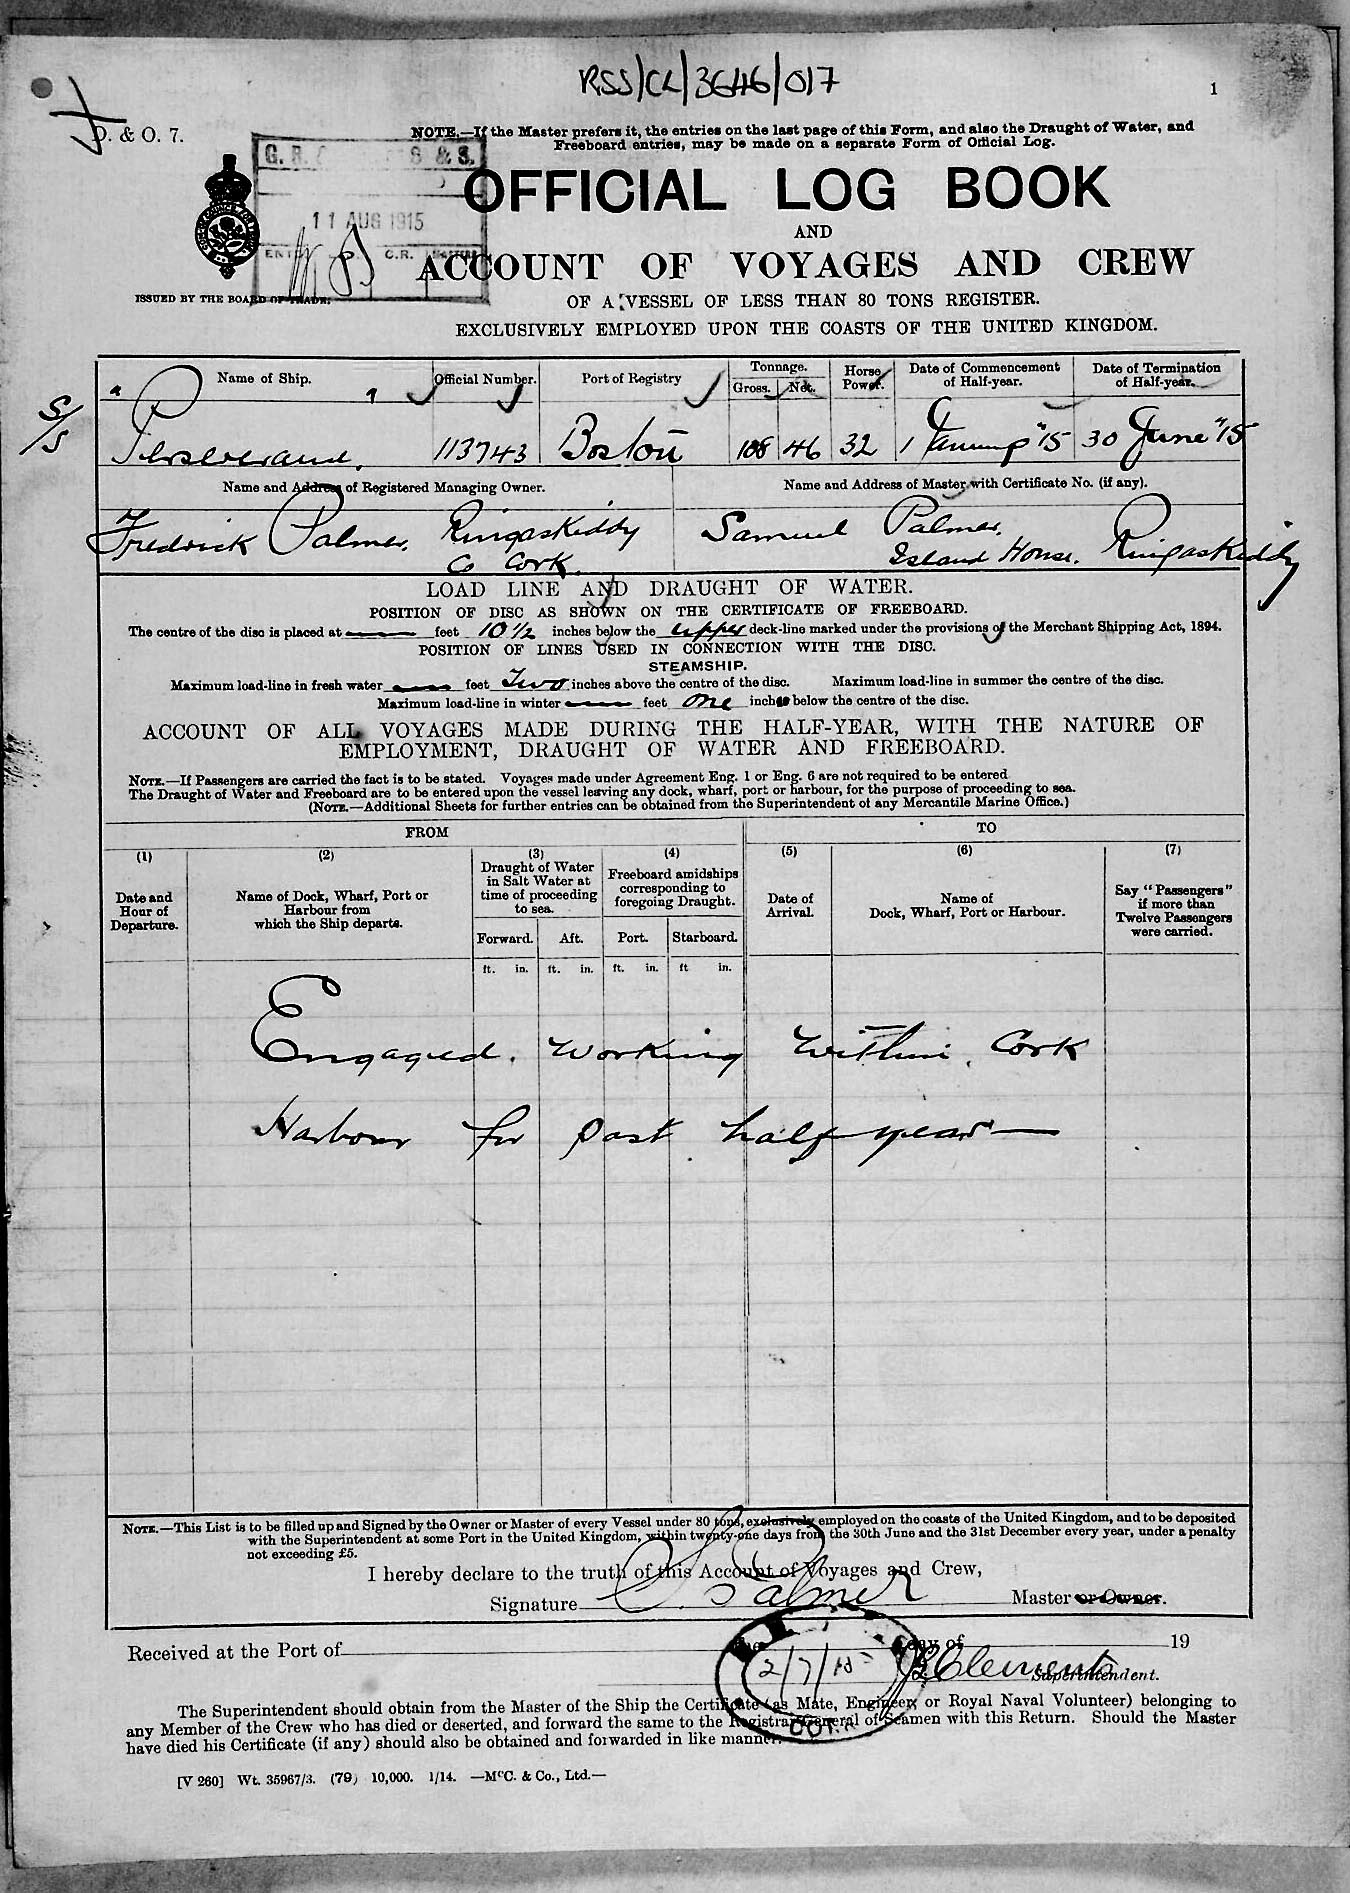 RSS/CL/3646/017
1
D. & O. 7.
NOTE.—If the Master prefers it, the entries on the last page of this Form, and also the Draught of Water, and
Freeboard entries, may be made on a separate Form of Official Log.
G. R. S & S.
11 AUG 1915
C.R.
OFFICIAL LOG BOOK
AND
ACCOUNT OF VOYAGES AND CREW
ISSUED BY THE BOARD OF TRADE.
OF A VESSEL OF LESS THAN 80 TONS REGISTER.
EXCLUSIVELY EMPLOYED UPON THE COASTS OF THE UNITED KINGDOM.
Name of Ship. Official Number. Port of Registry Tonnage. Gross. Net. Horse Power. Date of Commencement of Half-year. Date of Termination of Half-year.
S/S "Perseverance" 113743 Boston 108 46 32 1 January "15 30 June "15
Name and Address of Registered Managing Owner. Name and Address of Master with Certificate No. (if any).
Fredrick Palmer. Ringaskiddy Samuel Palmer.
Co Cork. Island House. Ringaskiddy
LOAD LINE AND DRAUGHT OF WATER.
POSITION OF DISC AS SHOWN ON THE CERTIFICATE OF FREEBOARD.
The centre of the disc is placed at — feet 10 1/2 inches below the upper deck-line marked under the provisions of the Merchant Shipping Act, 1894.
POSITION OF LINES USED IN CONNECTION WITH THE DISC.
STEAMSHIP.
Maximum load-line in fresh water — feet Two inches above the centre of the disc. Maximum load-line in summer the centre of the disc.
Maximum load-line in winter — feet one inches below the centre of the disc.
ACCOUNT OF ALL VOYAGES MADE DURING THE HALF-YEAR, WITH THE NATURE OF
EMPLOYMENT, DRAUGHT OF WATER AND FREEBOARD.
NOTE.—If Passengers are carried the fact is to be stated. Voyages made under Agreement Eng. 1 or Eng. 6 are not required to be entered
The Draught of Water and Freeboard are to be entered upon the vessel leaving any dock, wharf, port or harbour, for the purpose of proceeding to sea.
(NOTE.—Additional Sheets for further entries can be obtained from the Superintendent of any Mercantile Marine Office.)
FROM TO
(1) (2) (3) (4) (5) (6) (7)
Date and Hour of Departure.
Name of Dock, Wharf, Port or Harbour from which the Ship departs.
Draught of Water in Salt Water at time of proceeding to sea.
Freeboard amidships corresponding to foregoing Draught.
Date of Arrival.
Name of Dock, Wharf, Port or Harbour.
Say "Passengers" if more than Twelve Passengers were carried.
Forward. Aft. Port. Starboard.
ft. in. ft. in. ft. in. ft in.
Engaged. Working within Cork
Harbour for past half year —
NOTE.—This List is to be filled up and Signed by the Owner or Master of every Vessel under 80 tons, exclusively employed on the coasts of the United Kingdom, and to be deposited
with the Superintendent at some Port in the United Kingdom, within twenty-one days from the 30th June and the 31st December every year, under a penalty
not exceeding £5.
I hereby declare to the truth of this Account of Voyages and Crew,
Signature S. Palmer Master or Owner.
Received at the Port of the day of 19
2/7/15 Clements Superintendent.
The Superintendent should obtain from the Master of the Ship the Certificate (as Mate, Engineer, or Royal Naval Volunteer) belonging to
any Member of the Crew who has died or deserted, and forward the same to the Registrar General of Seamen with this Return. Should the Master
have died his Certificate (if any) should also be obtained and forwarded in like manner.
[V 260] Wt. 35967/3. (79) 10,000. 1/14. —McC. & Co., Ltd.—